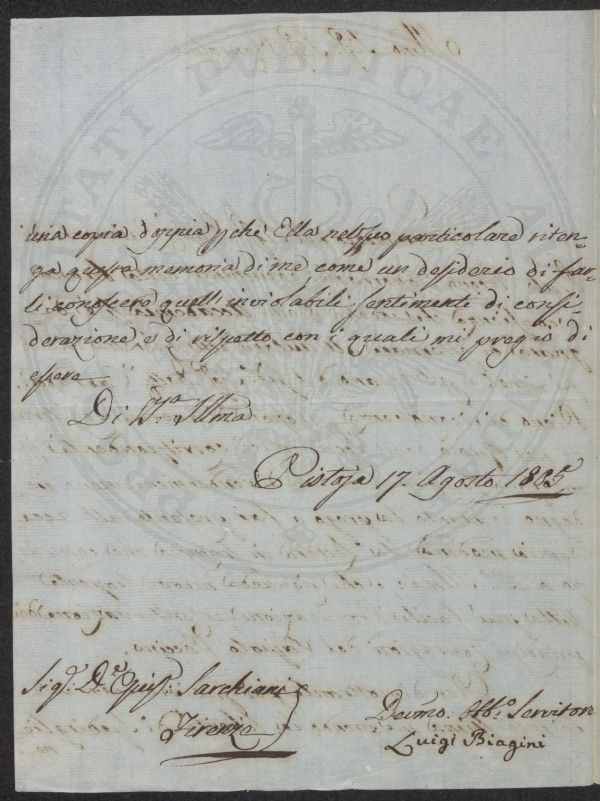 una copia doppia pchè Ella nel suo particolare riten-
ga questa memoria di me come un desiderio di far-
li conoscere quelli inviolabili sentimenti di consi-
derazione e di rispetto con i quali mi pregio di
essere
Di V.ra Illma
Pistoja 17. Agosto 1805
Sig.r D.re Sarchiani
Firenze
Devmo: Obb.o Servitore
Luigi Biagini